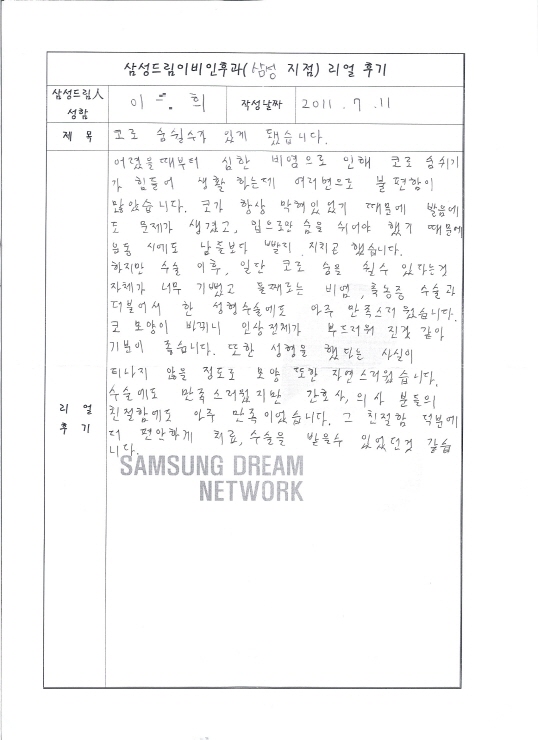 삼성드림이비인후과(삼성 지점) 리얼 후기
삼성드림人
성함
이 희
작성날짜
2011. 7. 11
제 목
코로 숨쉴수가 있게 됐습니다.
어렸을때부터 심한 비염으로 인해 코로 숨쉬기
가 힘들어 생활 하는데 여러번으로 불편함이
많았습니다. 코가 항상 막혀있었기 때문에 발음에
도 문제가 생겼고, 입으로만 숨을 쉬어야 했기 때문에
운동 시에도 남들보다 빨리 지치곤 했습니다.
하지만 수술 이후, 일단 코로 숨을 쉴수 있다는것
자체가 너무 기뻤고 둘째로는 비염, 축농증 수술과
더불어서 한 성형수술에도 아주 만족스러웠습니다.
코 모양이 바뀌니 인상전체가 부드러워 진것 같아
기분이 좋습니다. 또한 성형을 했다는 사실이
티나지 않을 정도로 모양 또한 자연스러웠습니다.
수술에도 만족스러웠지만 간호사, 의사 분들의
친절함에도 아주 만족이었습니다. 그 친절함 덕분에
더 편안하게 치료, 수술을 받을수 있었던것 같습
니다.
리 얼
후 기
SAMSUNG DREAM
NETWORK